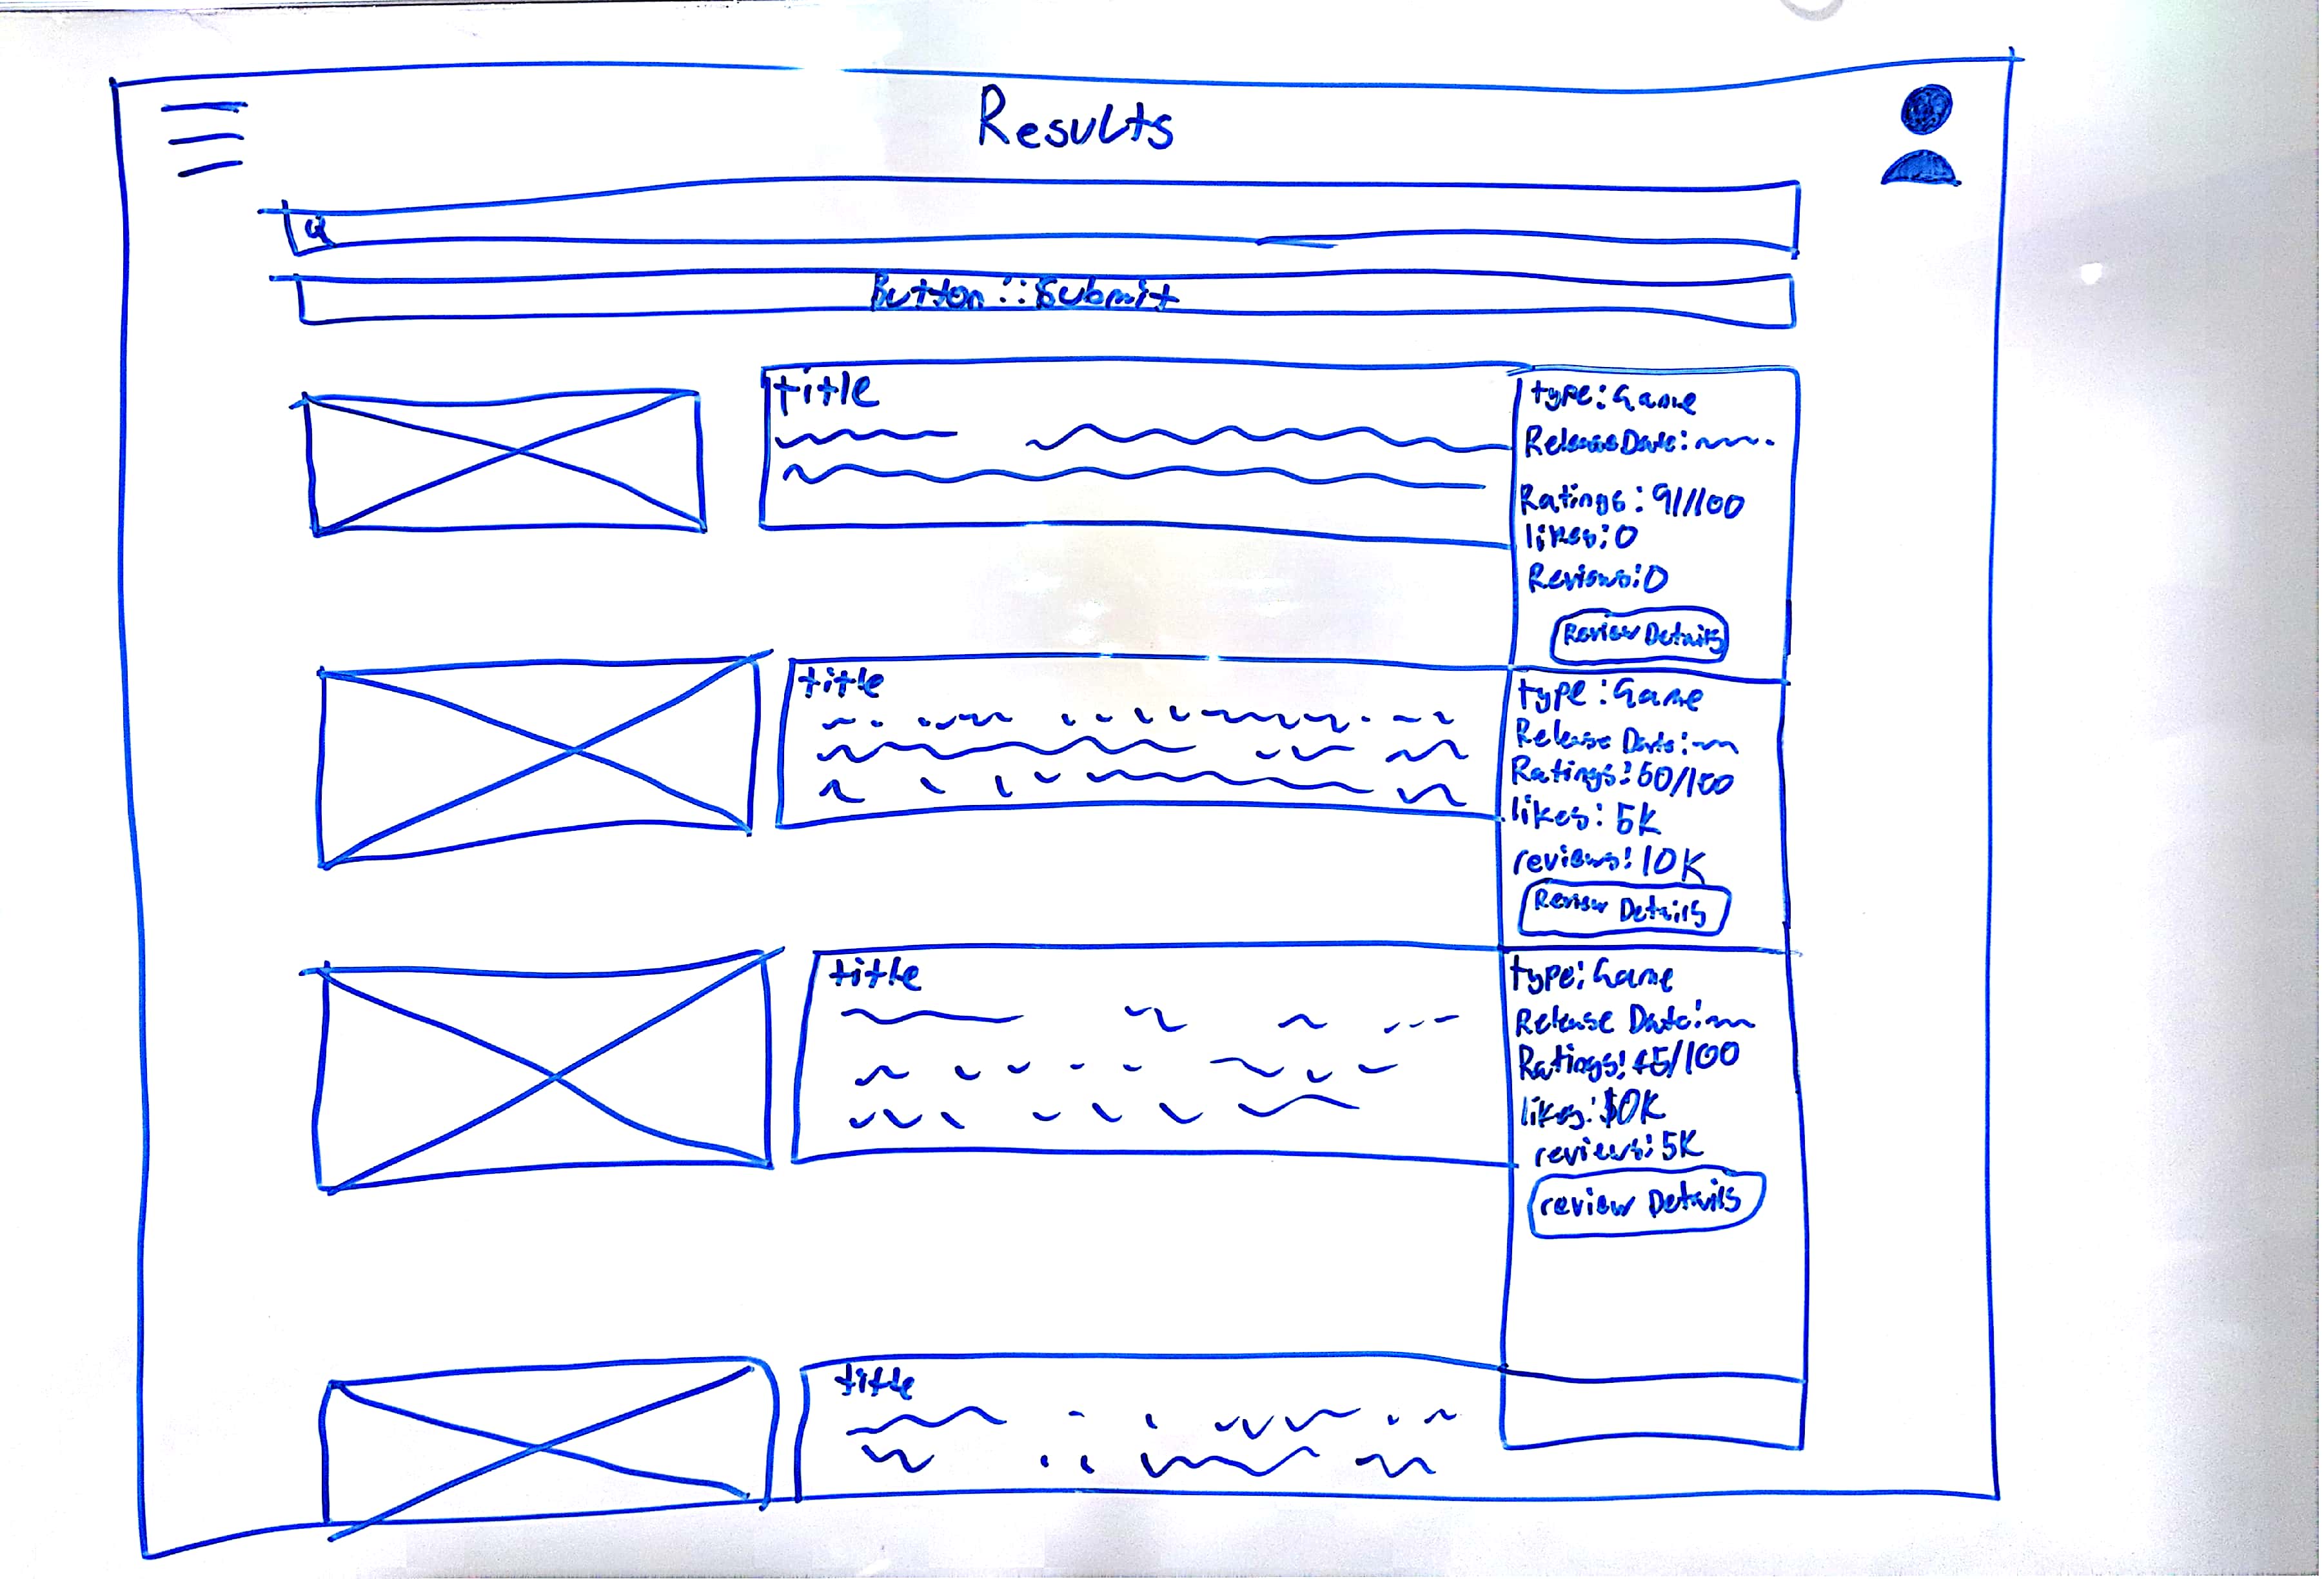 Results
Button::Submit
title
type:Game
Release Date:
Ratings:91/100
likes:0
Reviews:0
Review Details
title
type:Game
Release Date:
Ratings:50/100
likes:5k
reviews:10K
Review Details
title
type:Game
Release Date:
Ratings: /100
likes:
reviews:5K
review Details
title